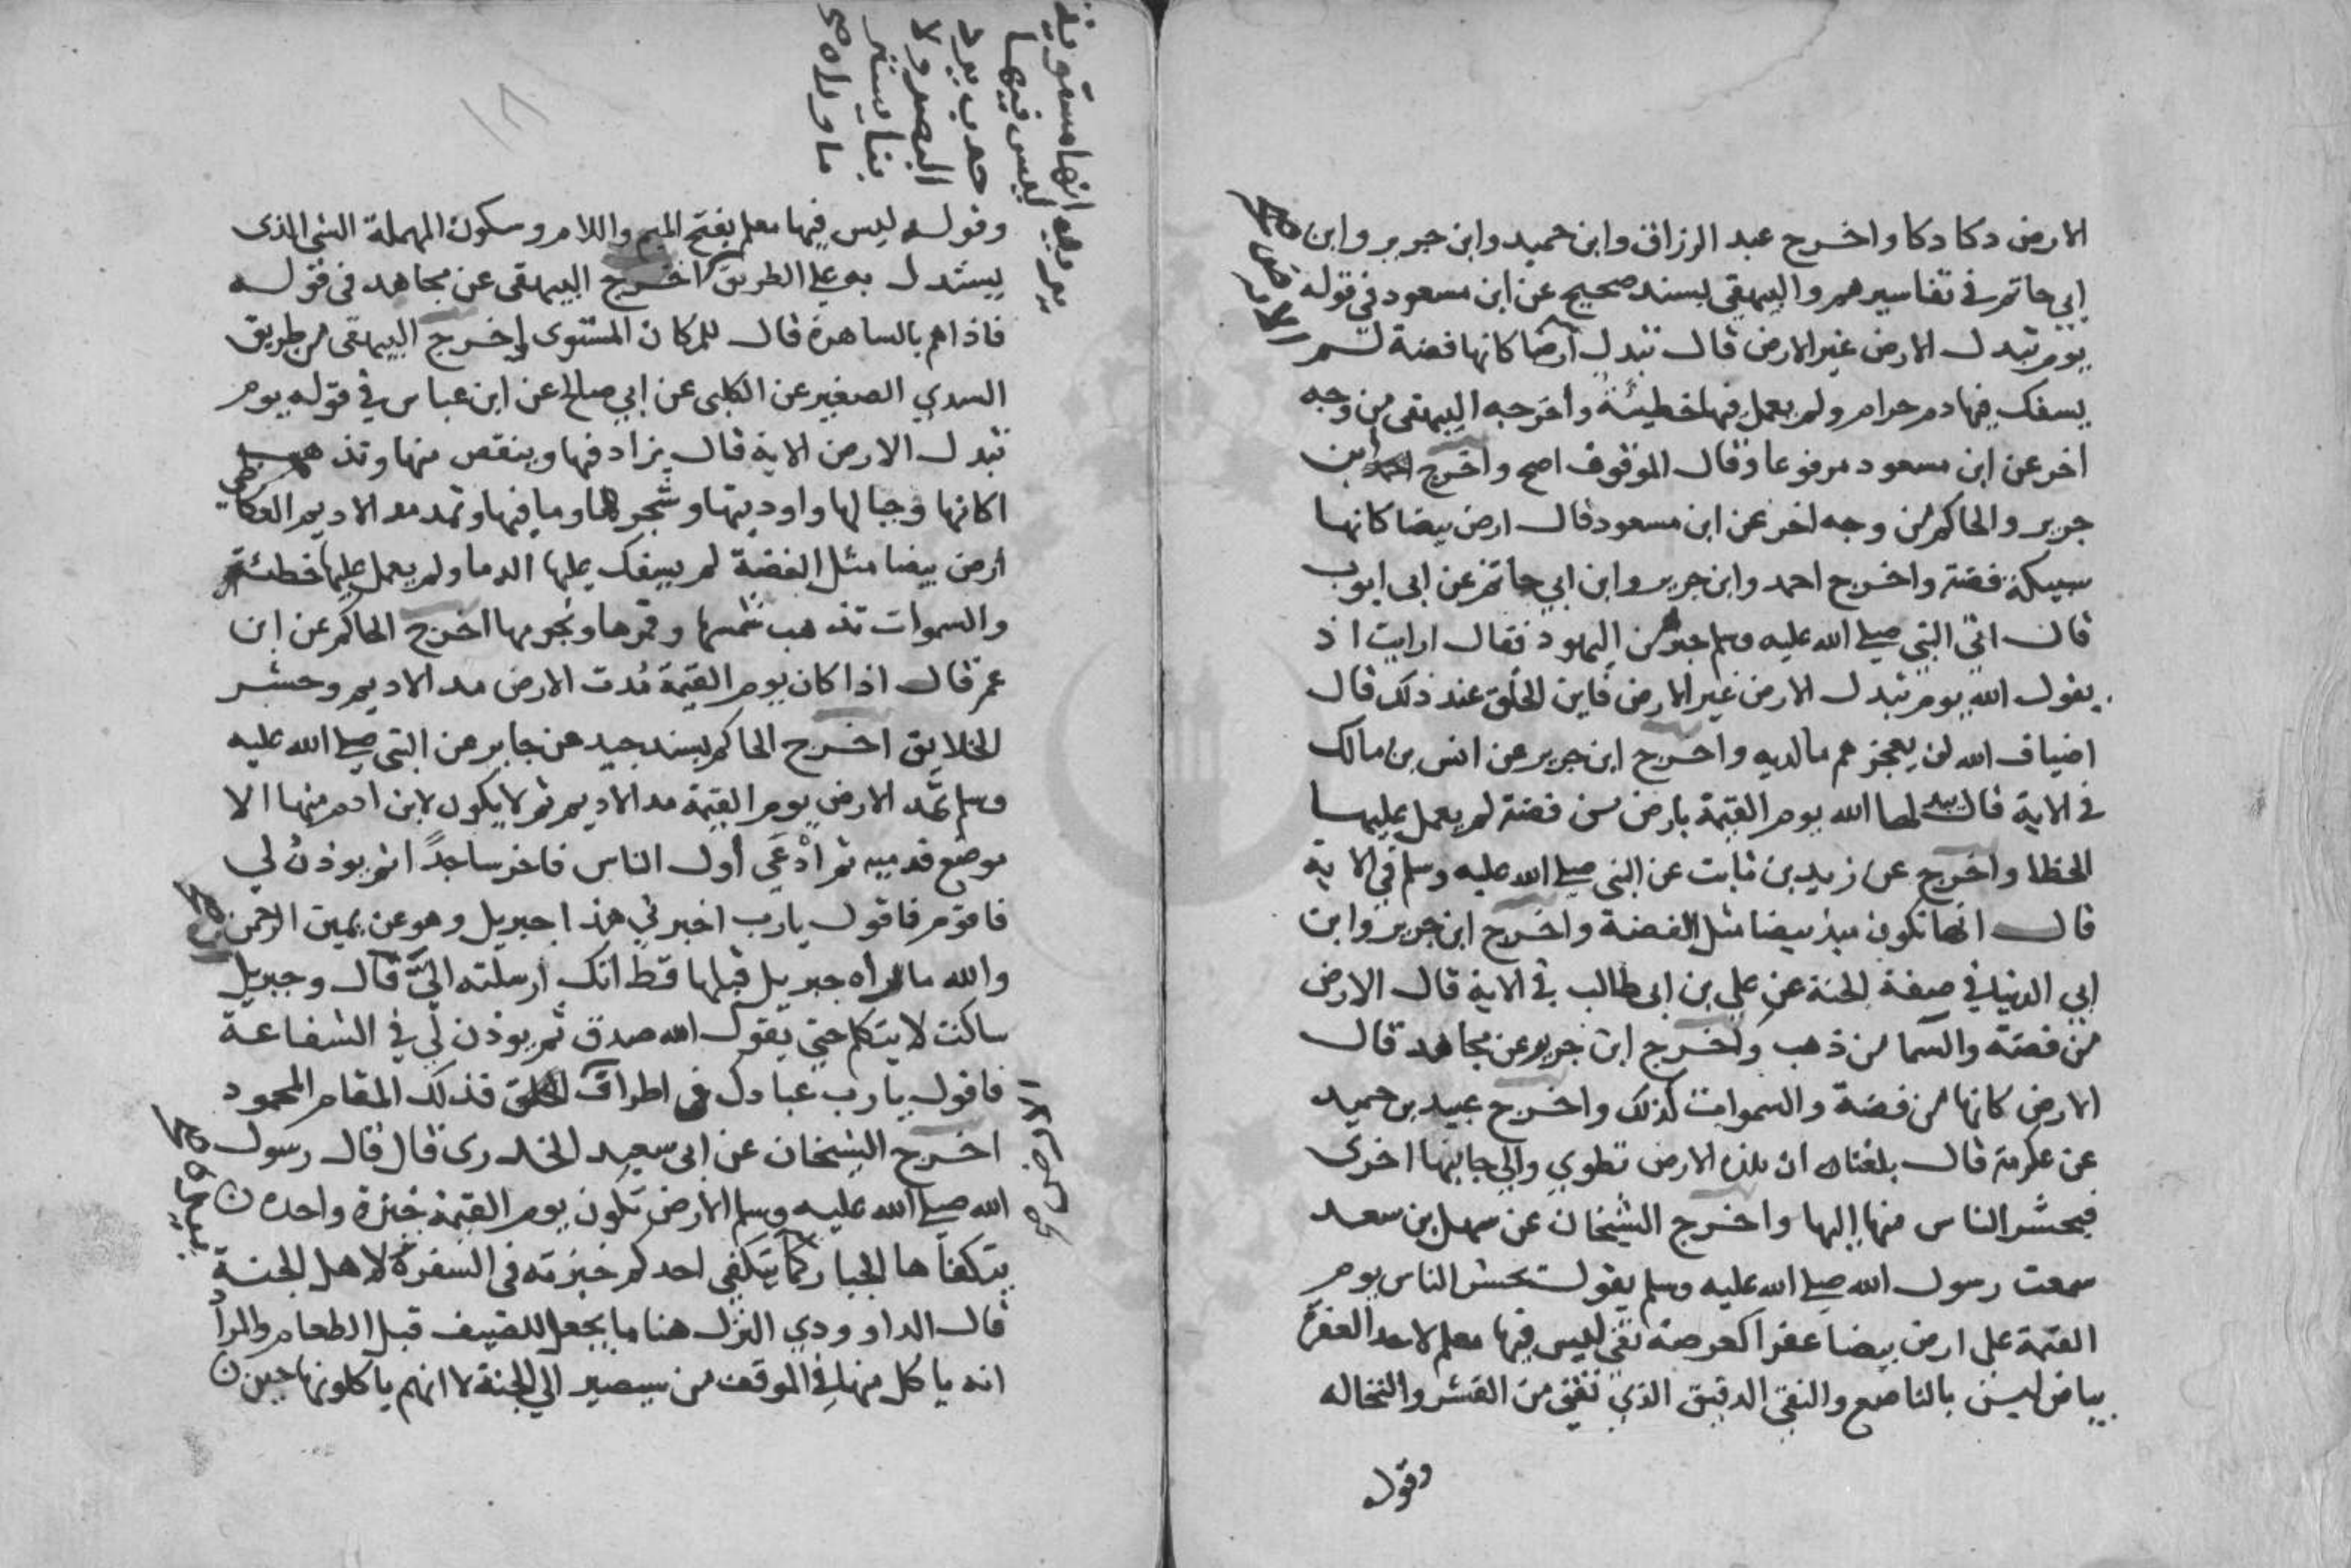 الارض دكا دكا واخرج عبد الرزاق وابن حميد وابن جرير وابن
ابي حاتم في تفاسيرهم والبيهقي بسند صحيح عن ابن مسعود في قوله
يوم تبدل الارض غير الارض قال تبدل ارضا كانها فضة لم
يسفك فيها دم حرام ولم يعمل فيها خطيئة واخرجه البيهقي من وجه
اخر عن ابن مسعود مرفوعا وقال الموقوف اصح واخرج ابن
جرير والحاكم من وجه اخر عن ابن مسعود قال ارض بيضا كانها
سبيكة فضة واخرج احمد وابن جرير وابن ابي حاتم عن ابي ايوب
قال اتي النبي صلى الله عليه وسلم حبر من اليهود فقال ارايت اذ
يقول الله يوم تبدل الارض غير الارض فاين الخلق عند ذلك قال
اضياف الله لن يعجزهم ما لديه واخرج ابن جرير عن انس بن مالك
في الاية قال يبدلها الله يوم القيمة بارض من فضة لم يعمل عليها
الخطا واخرج عن زيد بن ثابت عن النبي صلى الله عليه وسلم في الاية
قال انها تكون بيضا مثل الفضة واخرج ابن جرير وابن
ابي الدنيا في صفة الجنة عن علي بن ابي طالب في الاية قال الارض
من فضة والسما من ذهب واخرج ابن جرير عن مجاهد قال
الارض كانها من فضة والسموات كذلك واخرج عبد بن حميد
عن عكرمة قال بلغنا ان هذه الارض تطوي والي جانبها اخرى
فيحشر الناس منها اليها واخرج الشيخان عن سهل بن سعد
سمعت رسول الله صلى الله عليه وسلم يقول تحشر الناس يوم
القيمة على ارض بيضا عفرا كعرصة نقي ليس فيها معلم لاحد العفرة
بياض ليس بالناصع والنقي الدقيق الذي نقي من القشر والنخاله
وقوله
الارض
يريد انها مستوية
ليس فيها
حدب يرد
البصر ولا
بنا يستر
ما وراه صح
وقوله ليس فيها معلم بفتح الميم واللام وسكون المهملة الشي الذى
يستدل به على الطريق اخرج البيهقى عن مجاهد فى قوله
فاذا هم بالساهرة قال المكان المستوى واخرج البيهقى من طريق
السدي الصغير عن الكلبى عن ابي صالح عن ابن عباس في قوله يوم
تبدل الارض الاية قال يزاد فيها وينقص منها وتذهب
اكامها وجبالها واوديتها وشجرها وما فيها وتمد مد الاديم العكاظى
ارض بيضا مثل الفضة لم يسفك عليها الدما ولم يعمل عليها خطئة
والسموات تذهب شمسها وقمرها ونجومها اخرج الحاكم عن ابن
عمر قال اذا كان يوم القيمة مدت الارض مد الاديم وحشر
الخلايق اخرج الحاكم بسند جيد عن جابر عن النبى صلى الله عليه
وسلم تمد الارض يوم القيمة مد الاديم ثم لا يكون لابن ادم منها الا
موضع قدميه ثم ادعى أول الناس فاخر ساجدا ثم يوذن لي
فاقوم فاقول يارب اخبرني هذا جبريل وهو عن يمين الرحمن
والله ما راه جبريل قبلها قط انك ارسلته الي قال وجبريل
ساكت لا يتكلم حتي يقول الله صدق ثم يوذن لي في الشفاعة
فاقول يارب عبادك في اطراف فذلك المقام المحمود
اخرج الشيخان عن ابى سعيد الخدرى قال قال رسول
الله صلى الله عليه وسلم الارض تكون يوم القيمة خبزة واحدة
يتكفاها الجبار كما يتكفى احدكم خبزته فى السفرة لاهل الجنة
قال الداوودي النزل هنا ما يجعل للضيف قبل الطعام والمراد
انه ياكل منها في الموقف من سيصير الي الجنة لا انهم ياكلونها حين
الارض
بيده